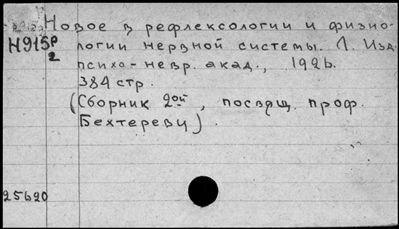 Новое в рефлексологии и физио-
Н915р
2
логии нервной системы. Л. Изд.
психо-невр. акад., 1926.
384 стр.
(Сборник 2ой, посвящ. проф.
Бехтереву).
25620